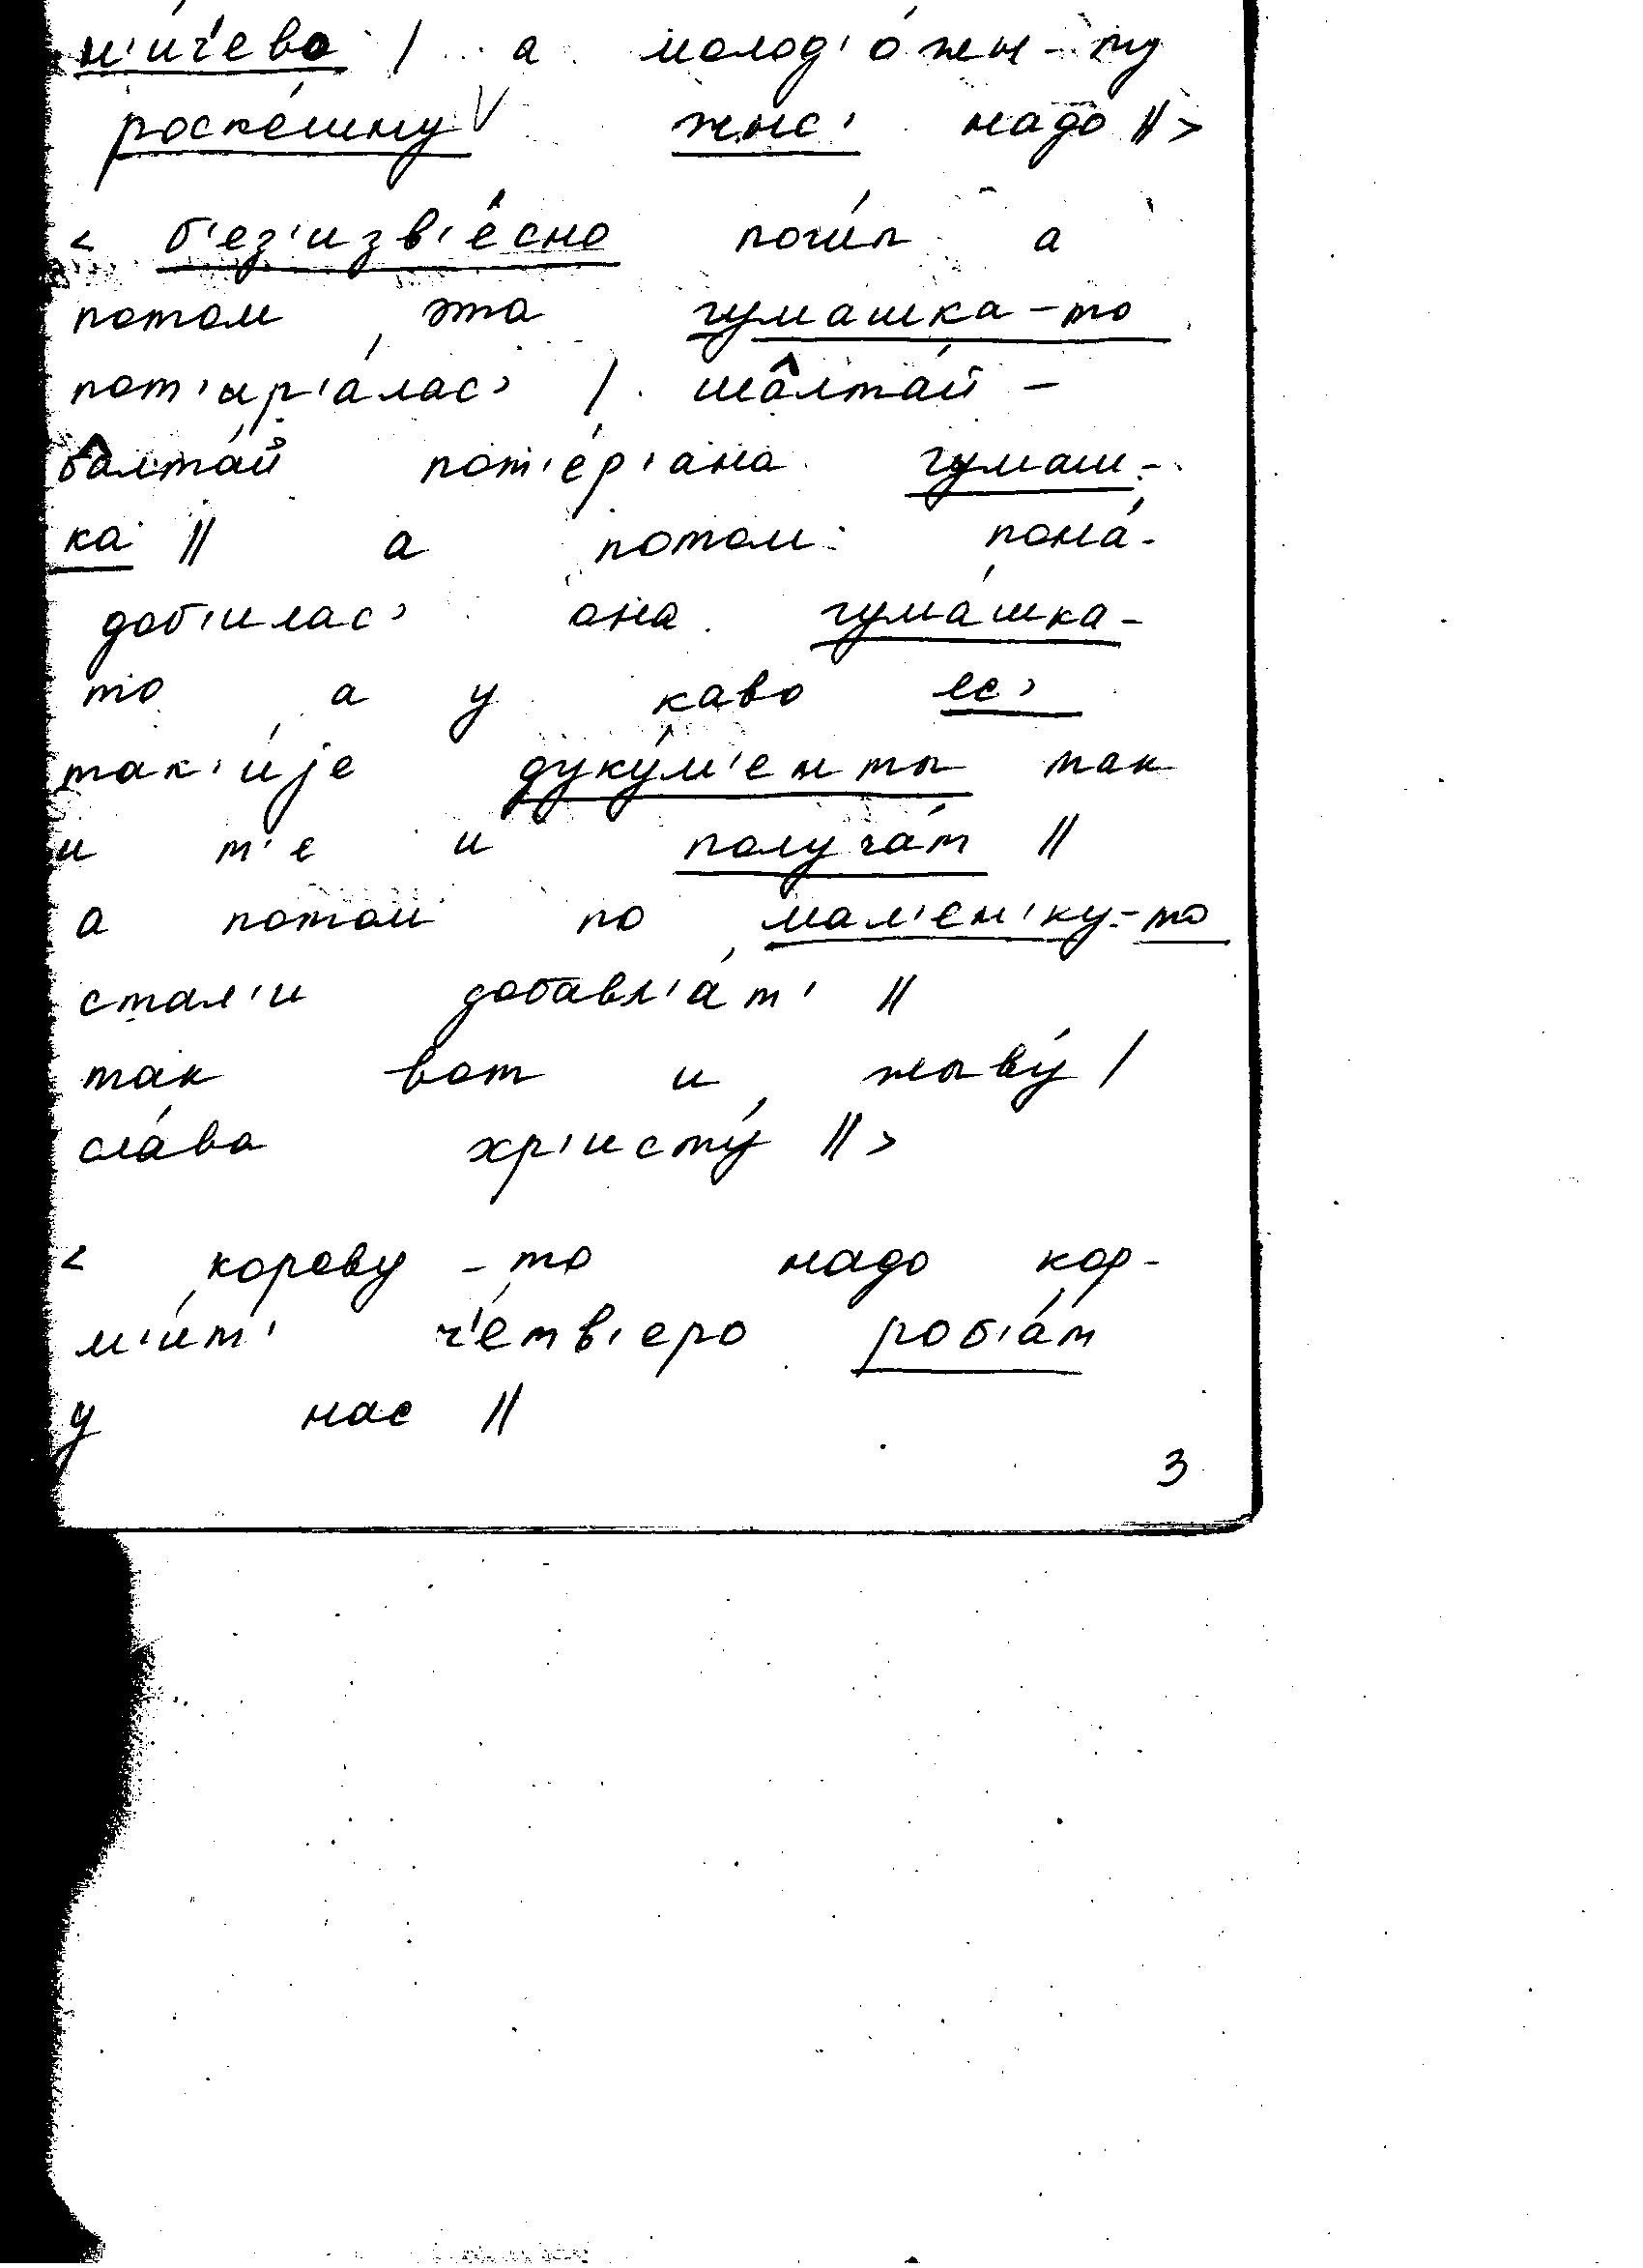 н'и́ч'ево / а молод'о́жы-ту
роске́шну жыс' надо //>
< б'ез'изв'е́сно поги́п а
потом эта гума́шка-то
пот'ир'а́лас' / ша̂лта́й -
ба̂лта́й пот'е́р'ана гумаш-
ка // а потом пона́-
доб'илас' она гума́шка-
то а у каво ес'
так'и́је дуку́м'енты так
и т'е и получа́т //
а потом по мал'ен'ку-то
стал'и добавл'а́т' //
так вот и жыву́ /
сла́ва хр'исту́ //>
< корову-то надо кор-
м'и́т' ч'е́тв'еро роб'а́т
у нас //
3